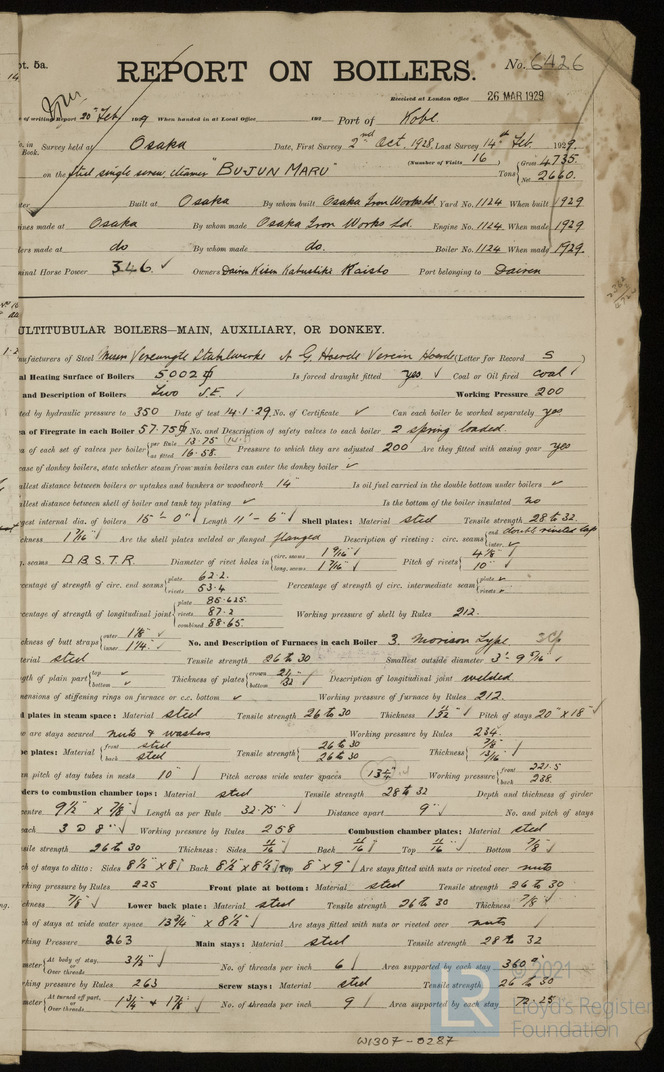 pt. 5a.
REPORT ON BOILERS.
No. 6426
14
Received at London Office 26 MAR 1929
of writing Report 20th Feb 1929 When handed in at Local Office 192 Port of Kobe
No. in Book. Survey held at Osaka Date, First Survey 2nd Oct. 1928 Last Survey 14th Feb. 1929.
(Number of Visits 16)
on the steel single screw steamer "BUJUN MARU" Tons { Gross 4735. Net 2660.
Built at Osaka By whom built Osaka Iron Works Ld Yard No. 1124 When built 1929
ines made at Osaka By whom made Osaka Iron Works Ld. Engine No. 1124 When made 1929
lers made at do By whom made do. Boiler No. 1124 When made 1929.
minal Horse Power 346 Owners Dairen Kisen Kabushiki Kaisho Port belonging to Dairen
ULTITUBULAR BOILERS—MAIN, AUXILIARY, OR DONKEY.
nufacturers of Steel Messrs Vereinigte Stahlwerke A G, Hoerde Verein Hoerde (Letter for Record S)
al Heating Surface of Boilers 5002 Is forced draught fitted yes Coal or Oil fired coal
and Description of Boilers Two S.E. Working Pressure 200
ted by hydraulic pressure to 350 Date of test 14.1.29. No. of Certificate Can each boiler be worked separately yes
a of Firegrate in each Boiler 57.75 No. and Description of safety valves to each boiler 2 spring loaded.
a of each set of valves per boiler { per Rule 13.75 as fitted 16.58 Pressure to which they are adjusted 200 Are they fitted with easing gear yes
ase of donkey boilers, state whether steam from main boilers can enter the donkey boiler
allest distance between boilers or uptakes and bunkers or woodwork 14" Is oil fuel carried in the double bottom under boilers
allest distance between shell of boiler and tank top plating Is the bottom of the boiler insulated no
gest internal dia. of boilers 15'-0" Length 11'-6" Shell plates: Material steel Tensile strength 28 to 32.
ckness 1 7/16" Are the shell plates welded or flanged flanged Description of riveting: circ. seams { end double riveted lap inter.
g. seams D.B.S.T.R. Diameter of rivet holes in { circ. seams 1 9/16" long. seams 1 7/16" Pitch of rivets { 4 1/8" 10"
centage of strength of circ. end seams { plate 62.2. rivets 53.4 Percentage of strength of circ. intermediate seam { plate rivets
centage of strength of longitudinal joint { plate 85.625. rivets 87.2 combined 88.65. Working pressure of shell by Rules 212.
ckness of butt straps { outer 1 1/8" inner 1 1/4" No. and Description of Furnaces in each Boiler 3. Morison Type
erial steel Tensile strength 26 to 30 Smallest outside diameter 3'-9 5/16"
gth of plain part { top bottom Thickness of plates { crown 21/32" bottom Description of longitudinal joint welded.
ensions of stiffening rings on furnace or c.c. bottom Working pressure of furnace by Rules 212.
d plates in steam space: Material steel Tensile strength 26 to 30 Thickness 1 1/32" Pitch of stays 20" x 18"
w are stays secured nuts & washers Working pressure by Rules 234.
be plates: Material { front steel back steel Tensile strength { 26 to 30 26 to 30 Thickness { 7/8" 13/16"
an pitch of stay tubes in nests 10" Pitch across wide water spaces 13 3/4" Working pressure { front 221.5 back 238.
ders to combustion chamber tops: Material steel Tensile strength 28 to 32 Depth and thickness of girder
centre 9 1/2" x 7/8" Length as per Rule 32.75" Distance apart 9" No. and pitch of stays
each 3 @ 8" Working pressure by Rules 258 Combustion chamber plates: Material steel
sile strength 26 to 30 Thickness: Sides 11/16" Back 11/16" Top 11/16" Bottom 7/8"
ch of stays to ditto: Sides 8 1/2" x 8" Back 8 1/2" x 8 1/2" Top 8" x 9" Are stays fitted with nuts or riveted over nuts
king pressure by Rules 225 Front plate at bottom: Material steel Tensile strength 26 to 30
ckness 7/8" Lower back plate: Material steel Tensile strength 26 to 30 Thickness 7/8"
ch of stays at wide water space 13 3/4" x 8 1/2" Are stays fitted with nuts or riveted over nuts
rking Pressure 263 Main stays: Material steel Tensile strength 28 to 32
meter { At body of stay, or Over threads 3 1/2" No. of threads per inch 6 Area supported by each stay 360
rking pressure by Rules 263 Screw stays: Material steel Tensile strength 26 to 30
meter { At turned off part, or Over threads 1 3/4" & 1 7/8" No. of threads per inch 9 Area supported by each stay 72.25
© 2021
LR
Lloyd's Register
Foundation
W1307-0287